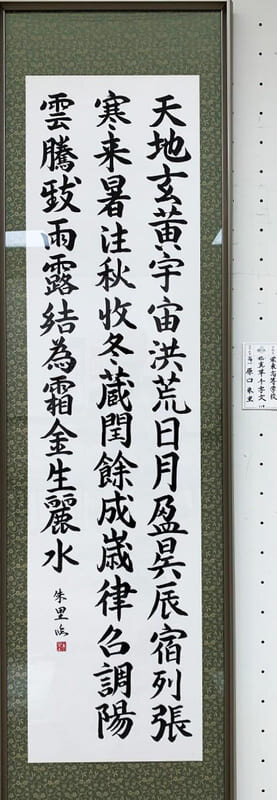 天地玄黃宇宙洪荒日月盈昃辰宿列張
寒来暑注秋收冬蔵閏餘成歳律呂調陽
雲騰致雨露結為霜金生麗水
朱里臨
原口朱里